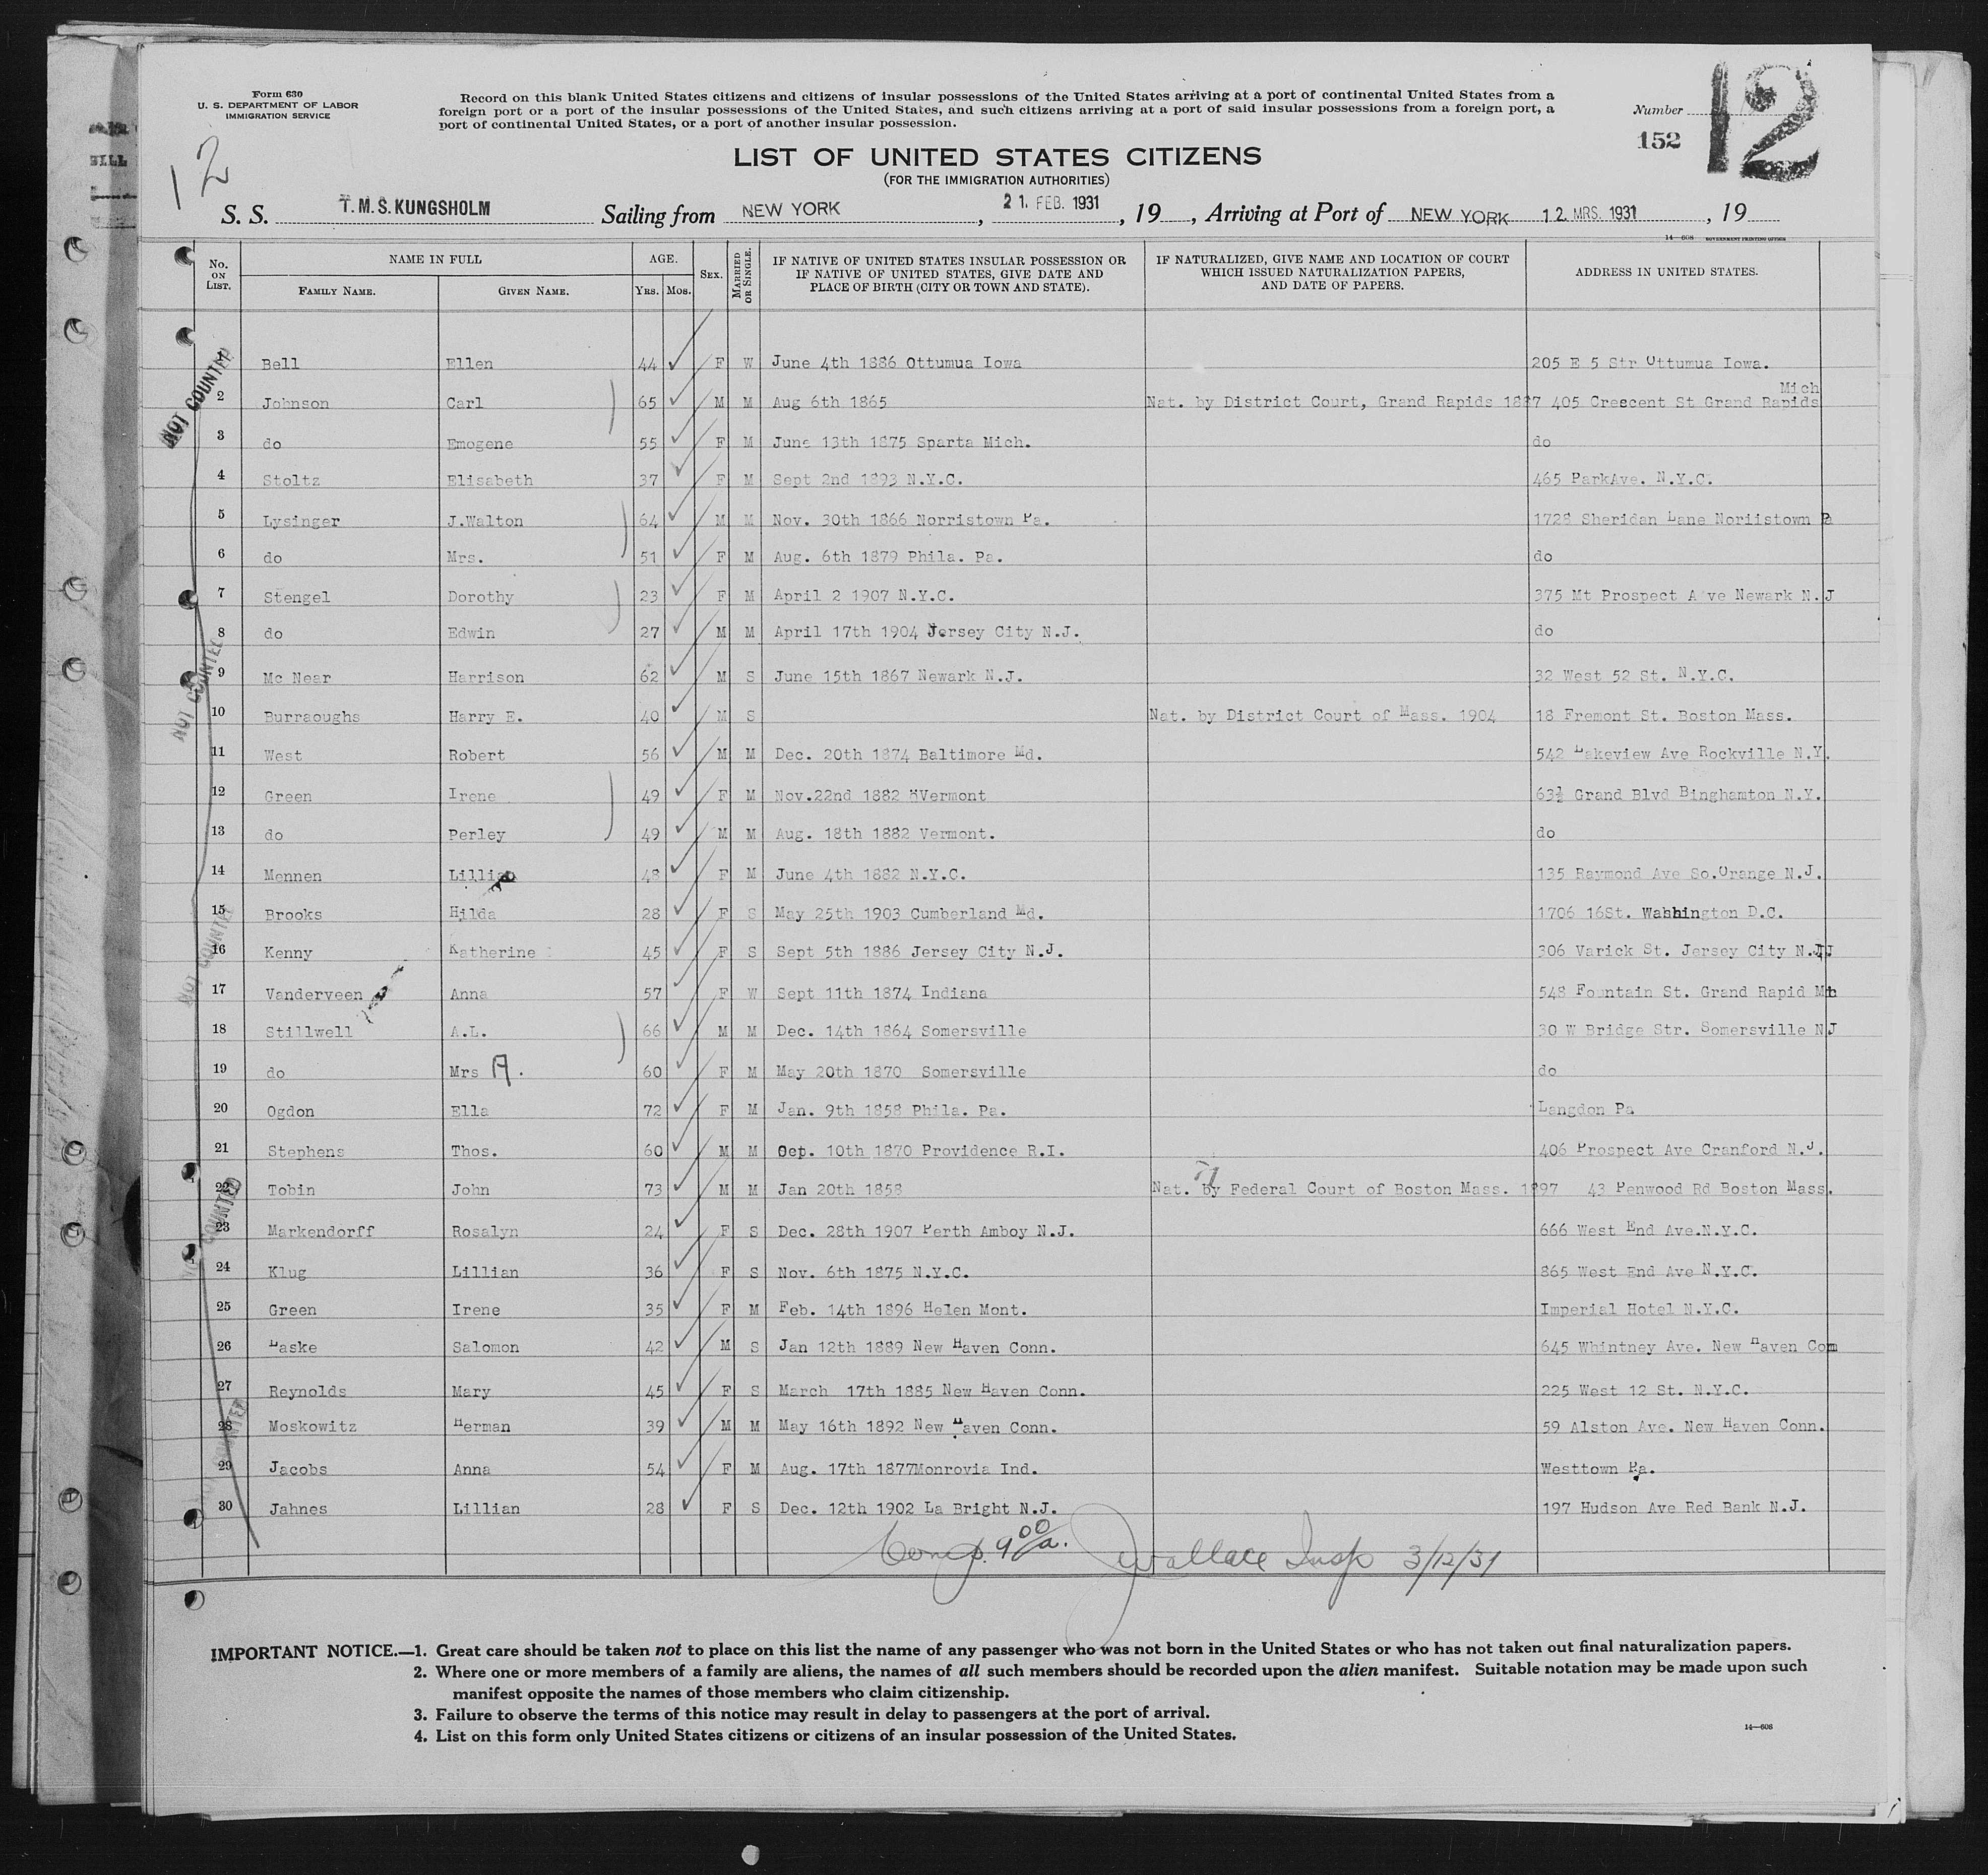 Form 630
U. S. DEPARTMENT OF LABOR
IMMIGRATION SERVICE
Record on this blank United States citizens and citizens of insular possessions of the United States arriving at a port of continental United States from a
foreign port or a port of the insular possessions of the United States, and such citizens arriving at a port of said insular possessions from a foreign port, a
port of continental United States, or a port of another insular possession.
Number
12
152
12
LIST OF UNITED STATES CITIZENS
(FOR THE IMMIGRATION AUTHORITIES)
S. S. T. M. S. KUNGSHOLM Sailing from NEW YORK , 21. FEB. 1931 , 19 , Arriving at Port of NEW YORK 12. MRS. 1931 , 19
14—608 GOVERNMENT PRINTING OFFICE
No. ON LIST. NAME IN FULL FAMILY NAME. GIVEN NAME. AGE. YRS. MOS. SEX. MARRIED OR SINGLE. IF NATIVE OF UNITED STATES INSULAR POSSESSION OR IF NATIVE OF UNITED STATES, GIVE DATE AND PLACE OF BIRTH (CITY OR TOWN AND STATE). IF NATURALIZED, GIVE NAME AND LOCATION OF COURT WHICH ISSUED NATURALIZATION PAPERS, AND DATE OF PAPERS. ADDRESS IN UNITED STATES.
NOT COUNTED
1 Bell Ellen 44 F W June 4th 1886 Ottumua Iowa 205 E 5 Str Ottumua Iowa.
2 Johnson Carl 65 M M Aug 6th 1865 Nat. by District Court, Grand Rapids 1887 405 Crescent St Grand Rapids Mich
3 do Emogene 55 F M June 13th 1875 Sparta Mich. do
4 Stoltz Elisabeth 37 F M Sept 2nd 1893 N.Y.C. 465 ParkAve. N.Y.C.
5 Lysinger J.Walton 64 M M Nov. 30th 1866 Norristown Pa. 1728 Sheridan Lane Noriistown Pa
6 do Mrs. 51 F M Aug. 6th 1879 Phila. Pa. do
7 Stengel Dorothy 23 F M April 2 1907 N.Y.C. 375 Mt Prospect A ve Newark N.J
8 do Edwin 27 M M April 17th 1904 Jersey City N.J. do
NOT COUNTED
9 Mc Near Harrison 62 M S June 15th 1867 Newark N.J. 32 West 52 St. N.Y.C.
10 Burraoughs Harry E. 40 M S Nat. by District Court of Mass. 1904 18 Fremont St. Boston Mass.
11 West Robert 56 M M Dec. 20th 1874 Baltimore Md. 542 Lakeview Ave Rockville N.Y.
12 Green Irene 49 F M Nov.22nd 1882 Vermont 63½ Grand Blvd Binghamton N.Y.
13 do Perley 49 M M Aug. 18th 1882 Vermont. do
14 Mennen Lillian 48 F M June 4th 1882 N.Y.C. 135 Raymond Ave So.Orange N.J.
15 Brooks Hilda 28 F S May 25th 1903 Cumberland Md. 1706 16St. Washington D.C.
NOT COUNTED
16 Kenny Katherine 45 F S Sept 5th 1886 Jersey City N.J. 306 Varick St. Jersey City N.J
17 Vanderveen Anna 57 F W Sept 11th 1874 Indiana 548 Fountain St. Grand Rapid Mch
18 Stillwell A.L. 66 M M Dec. 14th 1864 Somersville 30 W Bridge Str. Somersville NJ
19 do Mrs A. 60 F M May 20th 1870 Somersville do
20 Ogdon Ella 72 F M Jan. 9th 1858 Phila. Pa. Langdon Pa
21 Stephens Thos. 60 M M Oct. 10th 1870 Providence R.I. 406 Prospect Ave Cranford N.J.
22 Tobin John 73 M M Jan 20th 1858 Nat. by Federal Court of Boston Mass. 1897 43 Penwood Rd Boston Mass.
NOT COUNTED
23 Markendorff Rosalyn 24 F S Dec. 28th 1907 Perth Amboy N.J. 666 West End Ave.N.Y.C.
24 Klug Lillian 36 F S Nov. 6th 1875 N.Y.C. 865 West End Ave N.Y.C.
25 Green Irene 35 F M Feb. 14th 1896 Helen Mont. Imperial Hotel N.Y.C.
26 Laske Salomon 42 M S Jan 12th 1889 New Haven Conn. 645 Whintney Ave. New Haven Con
27 Reynolds Mary 45 F S March 17th 1885 New Haven Conn. 225 West 12 St. N.Y.C.
28 Moskowitz Herman 39 M M May 16th 1892 New Haven Conn. 59 Alston Ave. New Haven Conn.
29 Jacobs Anna 54 F M Aug. 17th 1877Monrovia Ind. Westtown Pa.
30 Jahnes Lillian 28 F S Dec. 12th 1902 La Bright N.J. 197 Hudson Ave Red Bank N.J.
Comp. 9 00/a. JWallace Insp 3/12/31
IMPORTANT NOTICE.—1. Great care should be taken not to place on this list the name of any passenger who was not born in the United States or who has not taken out final naturalization papers.
2. Where one or more members of a family are aliens, the names of all such members should be recorded upon the alien manifest. Suitable notation may be made upon such
manifest opposite the names of those members who claim citizenship.
3. Failure to observe the terms of this notice may result in delay to passengers at the port of arrival.
4. List on this form only United States citizens or citizens of an insular possession of the United States.
14—608